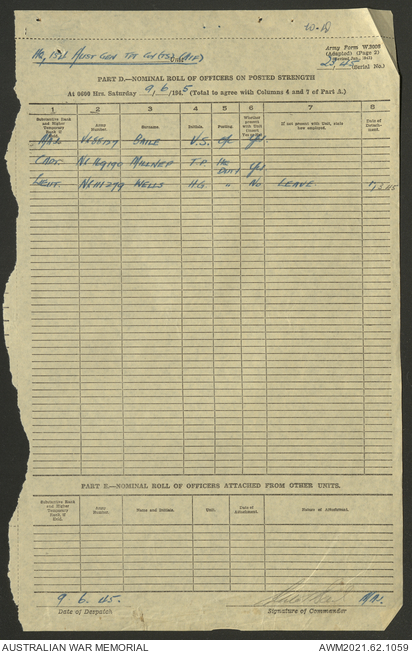 10-D
HQ, 151 Aust Gen Tpt Coy (AIF) Unit
Army Form W.3008
(Adapted) (Page 2)
(Serial No.)
PART D.—NOMINAL ROLL OF OFFICERS ON POSTED STRENGTH
At 0600 Hrs. Saturday 9/6/1945 (Total to agree with Columns 4 and 7 of Part A.)
1 2 3 4 5 6 7 8
Substantive Rank and Higher Temporary Rank if Held. Army Number. Surname. Initials. Posting. Whether present with Unit (Insert Yes or No) If not present with Unit, state how employed. Date of Detachment.
V.S. O/C Yes
Capt. T.P. Yes
Lieut. NX111279 Wells H.G. " No LEAVE.
PART E.—NOMINAL ROLL OF OFFICERS ATTACHED FROM OTHER UNITS.
Substantive Rank and Higher Temporary Rank if Held. Army Number. Name and Initials. Unit. Date of Attachment. Nature of Attachment.
9. 6. 45. Maj.
Date of Despatch Signature of Commander
AUSTRALIAN WAR MEMORIAL AWM2021.62.1059